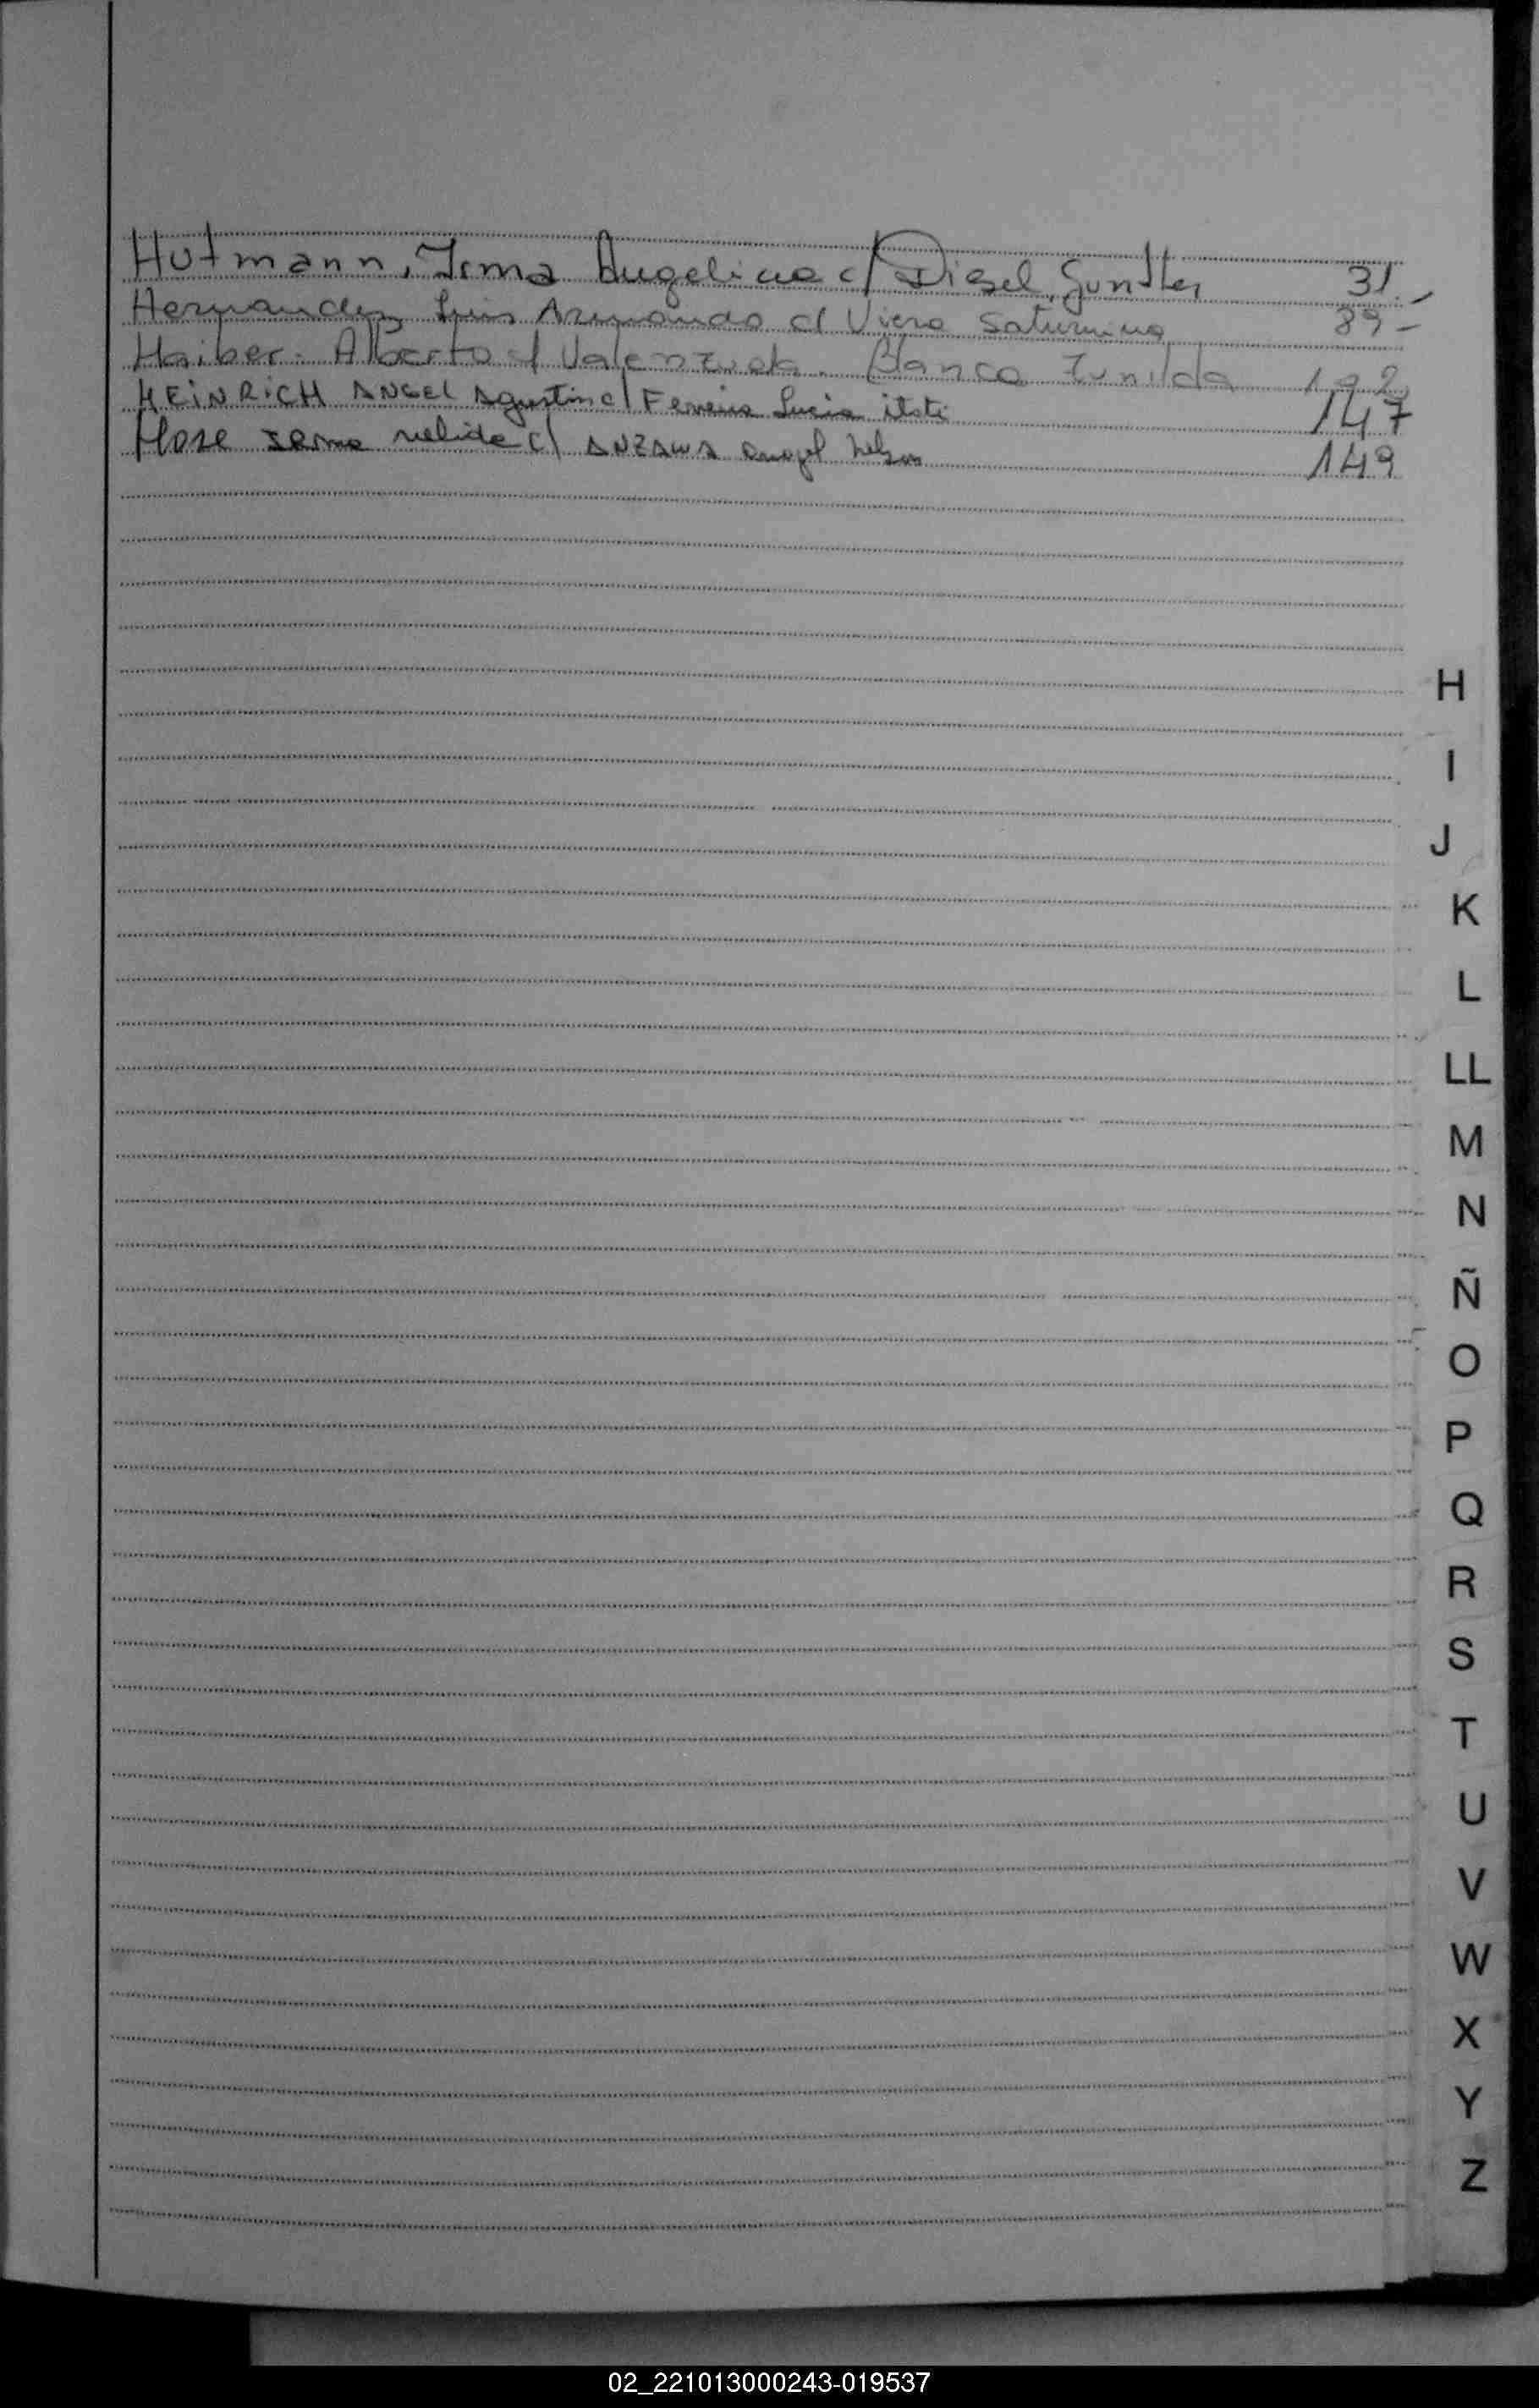 Hutmann, Irma Angelica c/ Diesel, Gunther 31-
Hernandez Luis Armando c/ Viera Saturnina 89-
Haiber. Alberto c/ Valenzuela. Blanca Zunilda 192
HEINRICH ANGEL Agustin c/ Ferreira Lucia itati 147
Hose nelida c/ ANZAWA angel nelson 149
H
I
J
K
L
LL
M
N
Ñ
O
P
Q
R
S
T
U
V
W
X
Y
Z
02_221013000243-019537